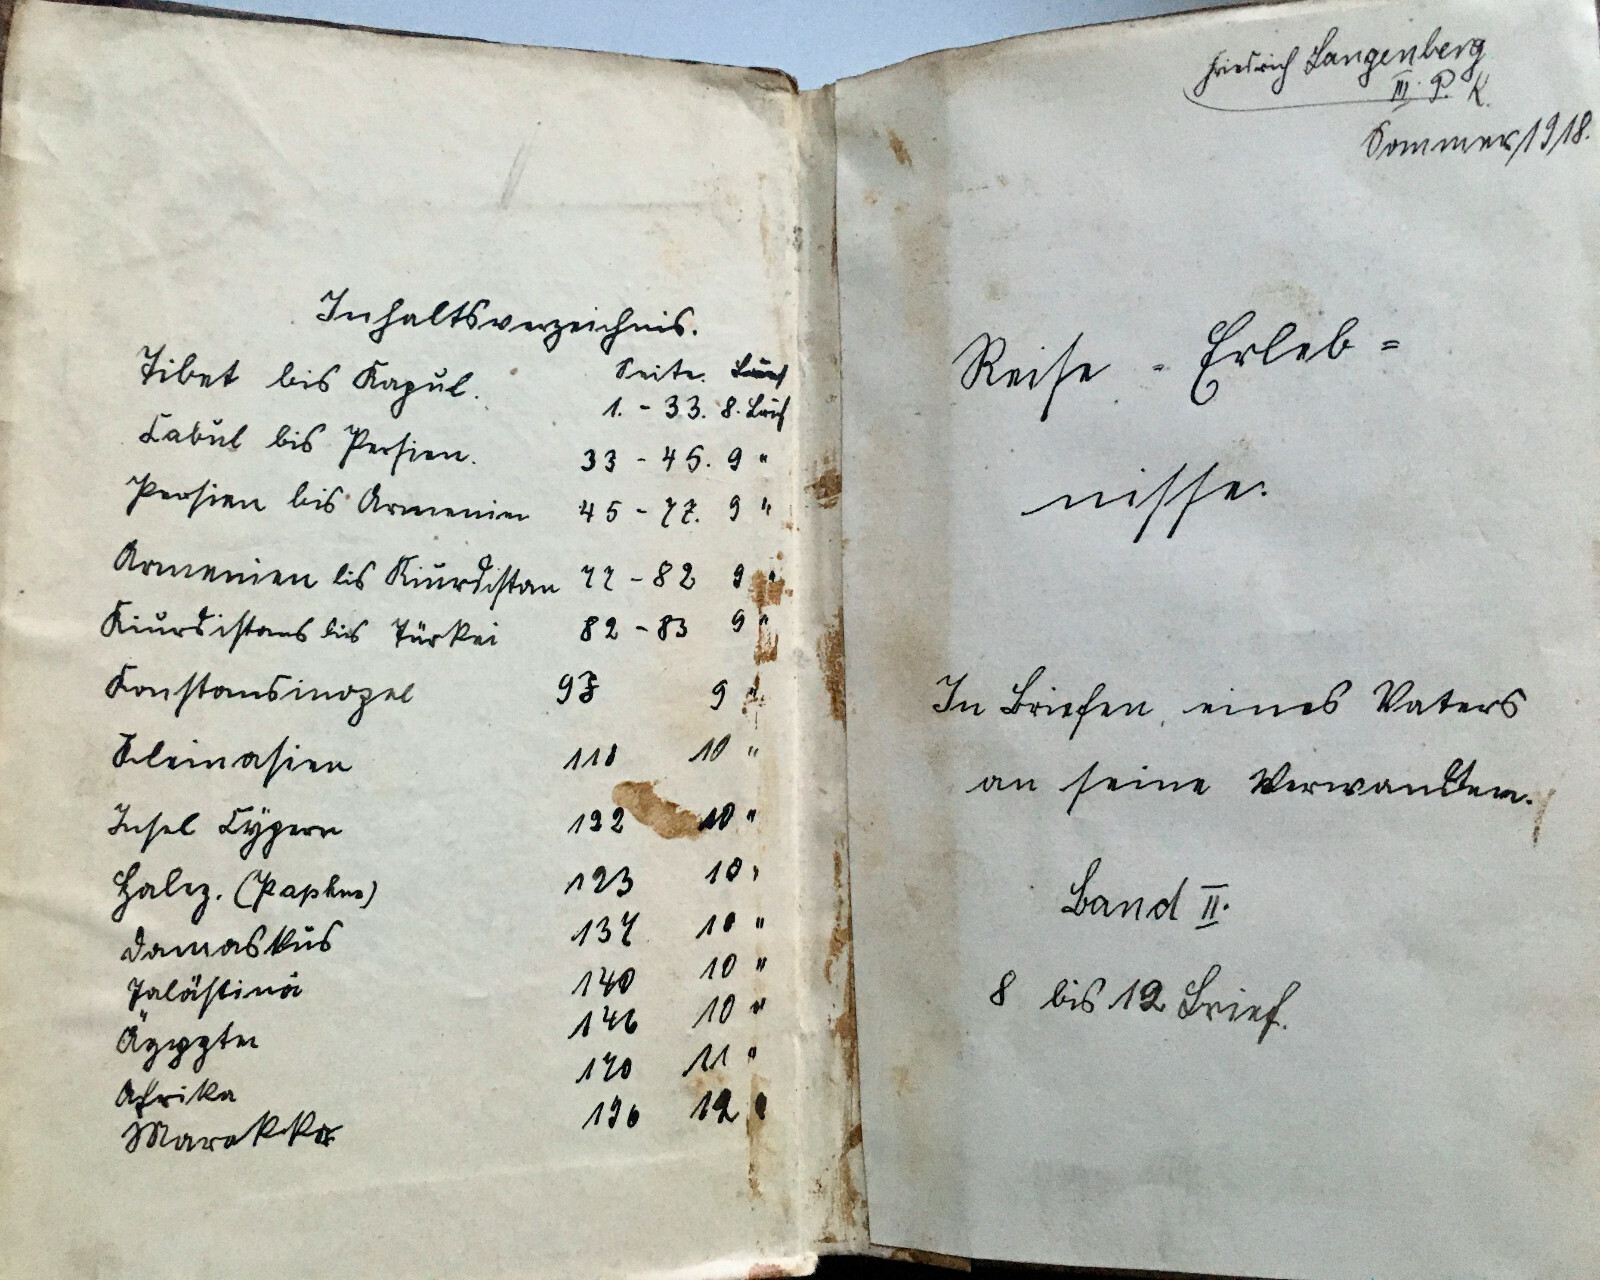 Inhaltsverzeichnis.
Seite.
Tibet bis Kapul. 1. - 33. 8. Brief
Cabul bis Persien. 33 - 45. 9 "
Persien bis Armenien 45 - 77. 9 "
Armenien bis Kiurdistan 77 - 82 9 "
Kiurdistans bis Türkei 82 - 83 9 "
Konstansinopel 93 9 "
Kleinasien 110 10 "
Insel Cÿpern 122 10 "
(Paphns) 123 10 "
Damaskus 137 10 "
Palästina 140 10 "
Ägypten 146 10 "
Afrika 170 11 "
Marokko 196 12 "
Friedrich Langenberg
III. P. K.
Sommer 1918.
Reise - Erleb =
nisse.
In Briefen eines Vaters
an seine Verwandten.
Band II.
8 bis 12 Brief.